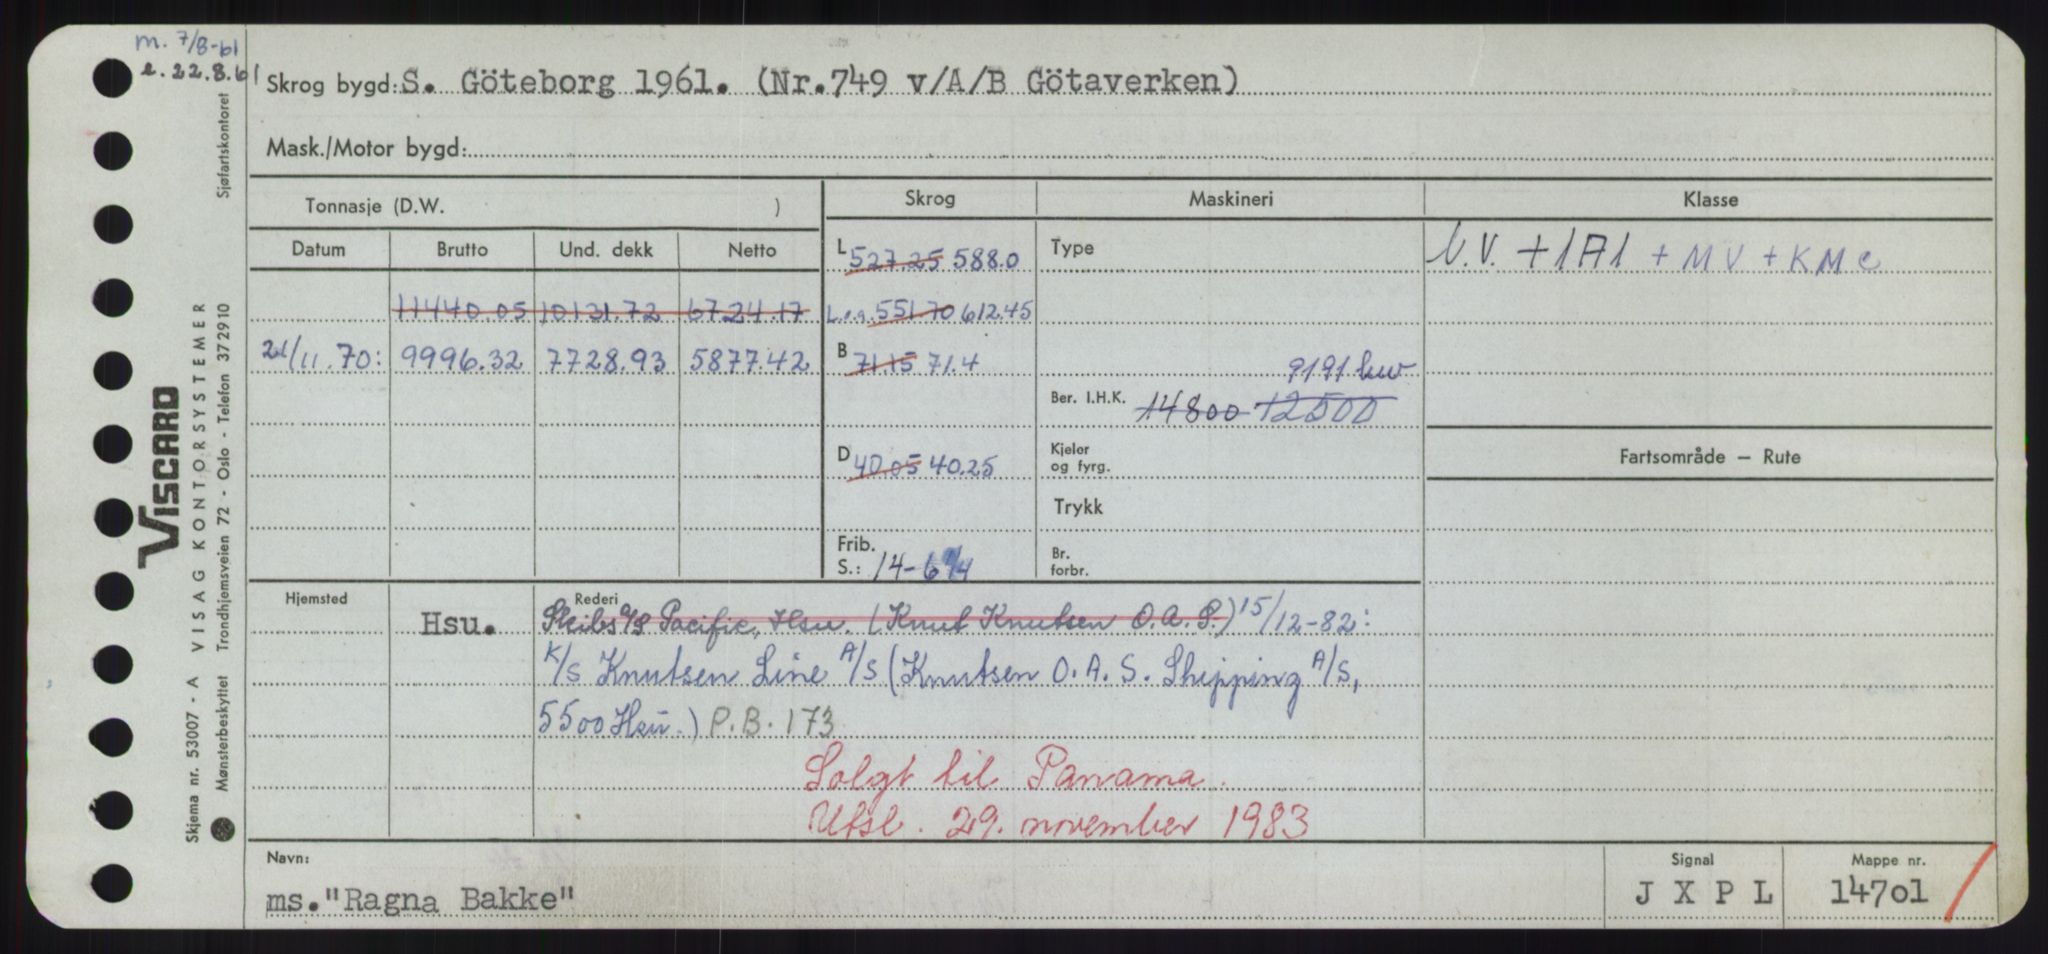 m. 7/8-61
e. 22.8.61
Skrog bygd: S. Göteborg 1961. (Nr.749 v/A/B Götaverken)
Mask./Motor bygd:
Tonnasje (D.W. )
Skrog
Maskineri
Klasse
Datum Brutto Und. dekk Netto
L 527.25 588.0
Type
V.V. +1A1 + MV + KMC
11440.05 10131.72 6724.17
L.o.a. 551.70 612.45
21/11.70: 9996.32 7728.93 5877.42
B 71.15 71.4
9191 kw
Ber. I.H.K. 14800 12500
D 40.05 40.25
Kjeler
og fyrg.
Fartsområde – Rute
Trykk
Frib.
S.: 14-6
Br.
forbr.
Hjemsted
Rederi
Hsu. Skibs A/S Pacific, Hsu. (Knut Knutsen O.A.S.) 15/12-82:
K/S Knutsen Line A/S (Knutsen O.A.S. Shipping A/S,
5500 Hsu.) P.B. 173
Solgt til Panama.
Utsl. 29. november 1983
Navn:
ms. "Ragna Bakke"
Signal
J X P L
Mappe nr.
14701
Sjøfartskontoret
VISCARD
VISAG KONTORSYSTEMER
Skjema nr. 53007 - A
Mønsterbeskyttet Trondhjemsveien 72 - Oslo - Telefon 372910